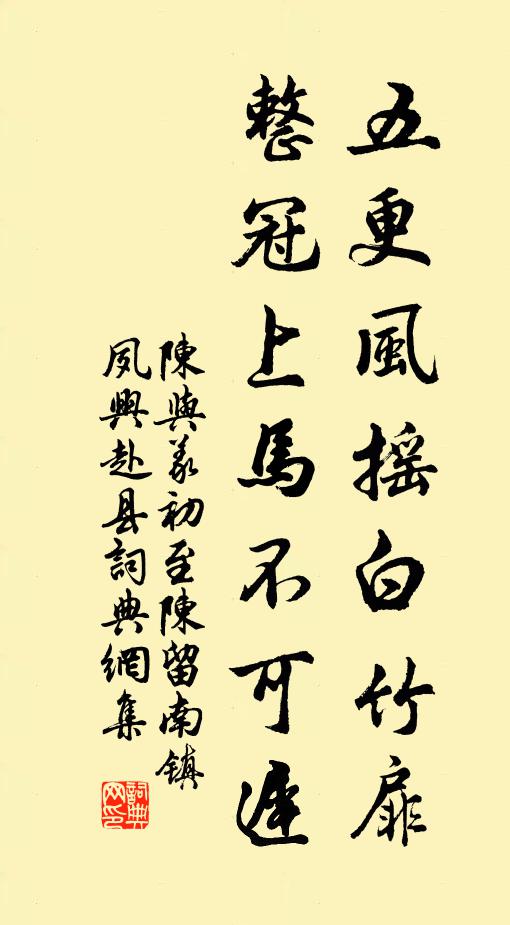 五更風搖白竹扉
整冠上馬不可遲
陳與義初至陳留南鎮
夙興赴县詞典網集
詞典
网印